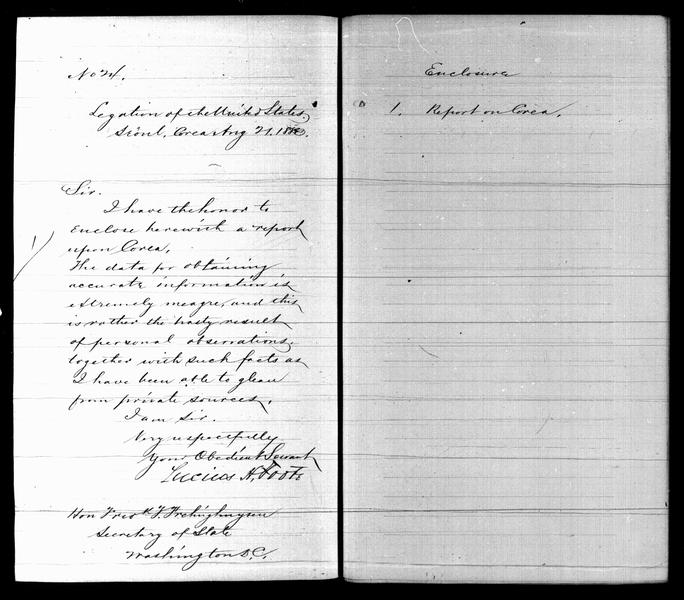 No 24.
Legation of the United States,
Séoul, Corea Aug 21. 1883.
Sir.
I have the honor to
enclose herewith a report
upon Corea.
The data for obtaining
accurate information is
extremely meagre, and this
is rather the hasty result
of personal observations,
together with such facts as
I have been able to glean
from private sources.
I am Sir.
Very respectfully
Your Obedient Servant
Lucius H. Foote
Hon Fred k T. Frelinghuysen
Secretary of State
Washington D.C.
Enclosure
1. Report on Corea.